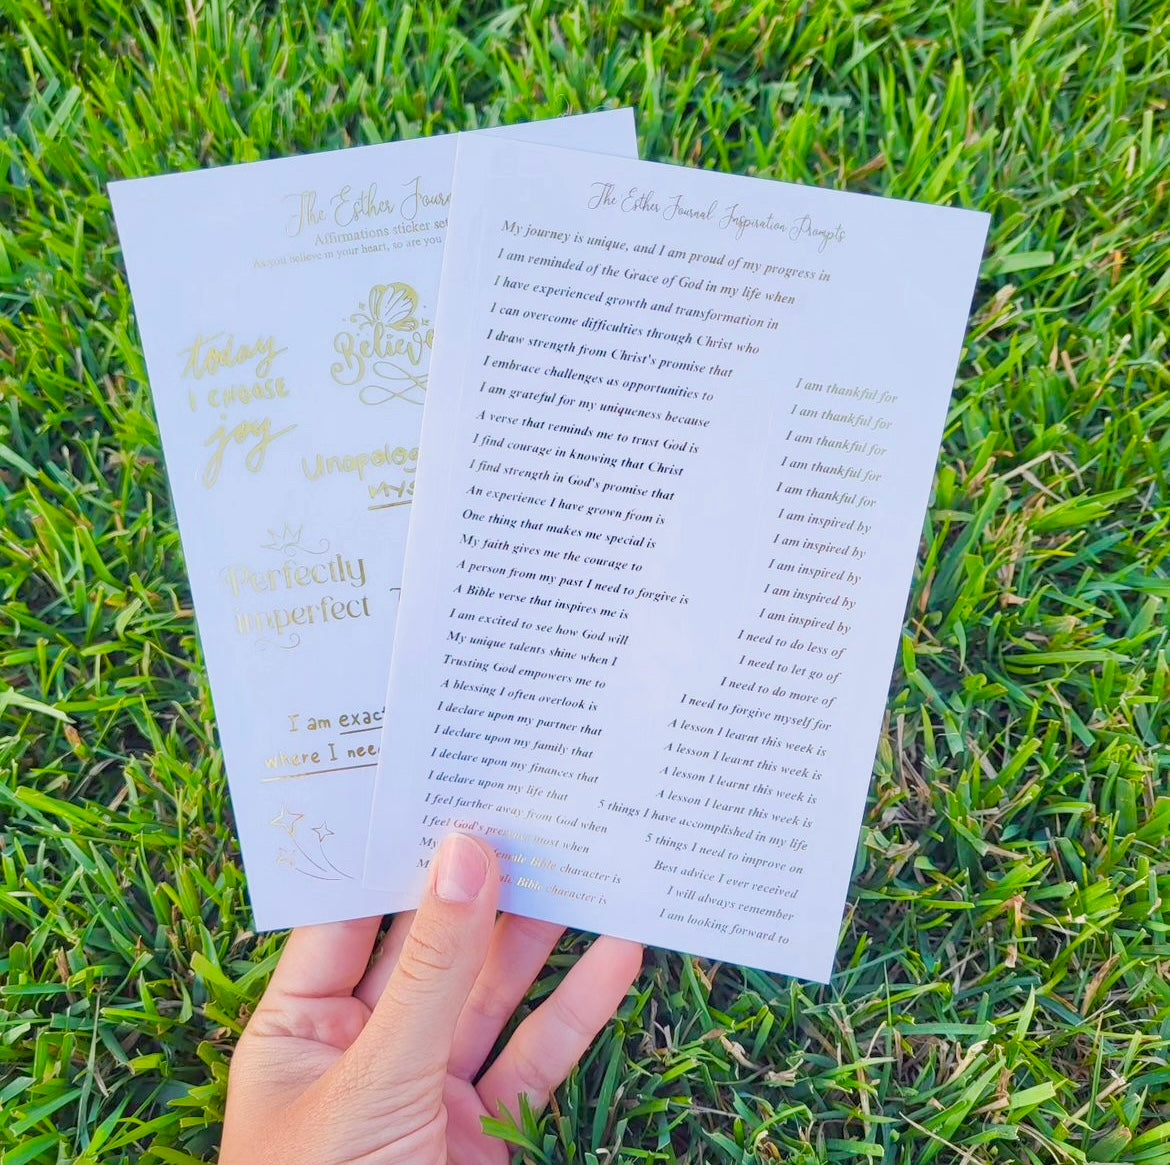 The Esther
Affirmations sticker set
As you believe in your heart, so are you
Believe
today
I CHOOSE
joy
Perfectly
imperfect
I am
where I
The Esther Journal Inspiration Prompts
My journey is unique, and I am proud of my progress in
I am reminded of the Grace of God in my life when
I have experienced growth and transformation in
I can overcome difficulties through Christ who
I draw strength from Christ's promise that
I embrace challenges as opportunities to
I am grateful for my uniqueness because
A verse that reminds me to trust God is
I find courage in knowing that Christ
I find strength in God's promise that
An experience I have grown from is
One thing that makes me special is
My faith gives me the courage to
A person from my past I need to forgive is
A Bible verse that inspires me is
I am excited to see how God will
My unique talents shine when I
Trusting God empowers me to
A blessing I often overlook is
I declare upon my partner that
I declare upon my family that
I declare upon my finances that
I declare upon my life that
I feel farther away from God when
I feel God's presence most when
My female Bible character is
Bible character is
I am thankful for
I am thankful for
I am thankful for
I am thankful for
I am thankful for
I am inspired by
I am inspired by
I am inspired by
I am inspired by
I am inspired by
I need to do less of
I need to let go of
I need to do more of
I need to forgive myself for
A lesson I learnt this week is
A lesson I learnt this week is
A lesson I learnt this week is
A lesson I learnt this week is
5 things I have accomplished in my life
5 things I need to improve on
Best advice I ever received
I will always remember
I am looking forward to